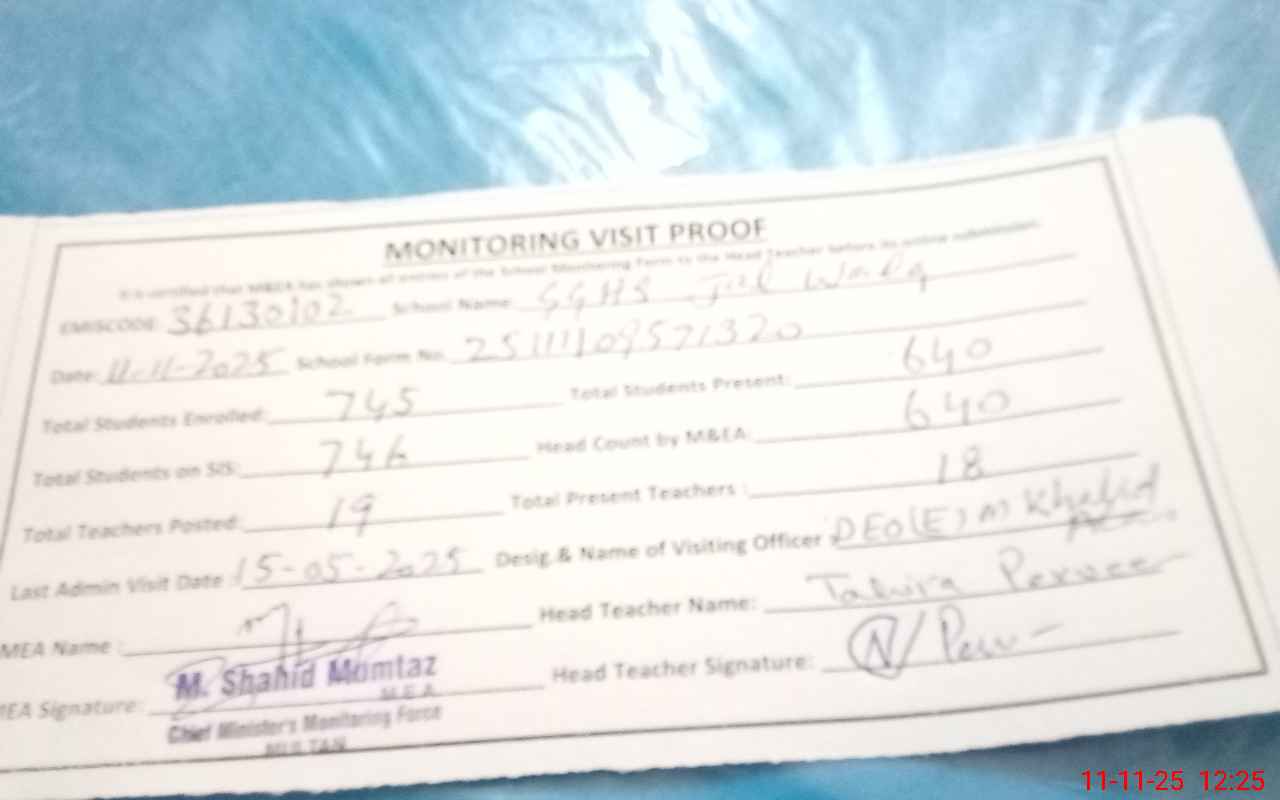 MONITORING VISIT PROOF
It is certified that M&EA has shown all entries of the School Monitoring Form to the Head Teacher before its online submission.
EMISCODE: 36130102 School Name: GGHS
Date: 11-11-2025 School Form No. 25111109571320
Total Students Enrolled: 745 Total Students Present: 640
Total Students on SIS: 746 Head Count by M&EA: 640
Total Teachers Posted: 19 Total Present Teachers : 18
Last Admin Visit Date : 15-05-2025 Desig.& Name of Visiting Officer DEO(E) M Khalid
MEA Name : Head Teacher Name: Tahira Perveen
M. Shahid Momtaz
M.E.A
MEA Signature: Head Teacher Signature:
Chief Minister's Monitoring Force
MULTAN
11-11-25 12:25